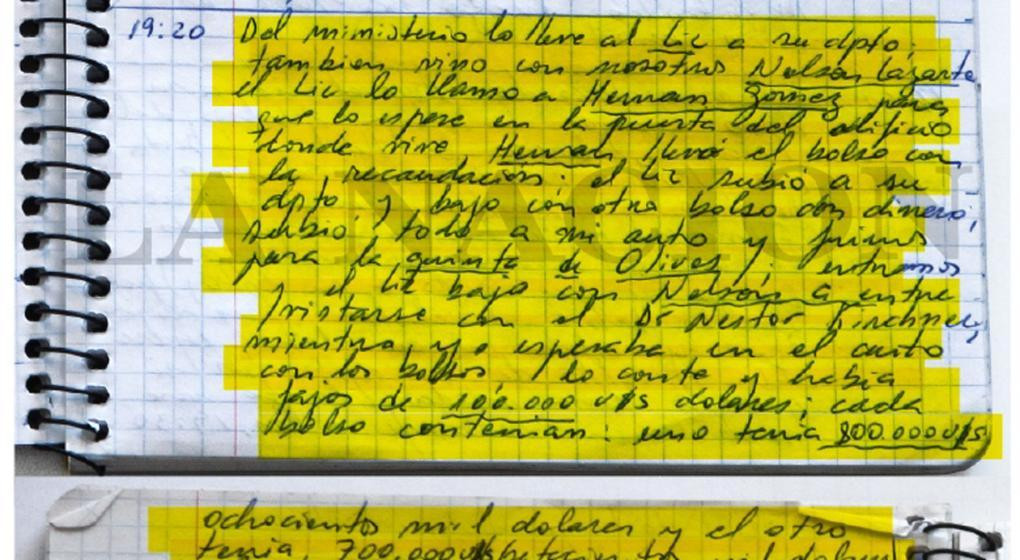 19:20 Del miministerio lo lleve al Lic a su dpto;
tambien vino con nosotros Nelson Lazarte
el Lic lo llamo a Hernan Gomez para
que lo espere en la puerta del edificio
donde vive Hernan llevó el bolso con
la recaudación; el Lic subió a su
dpto y bajo con otro bolso con dinero;
subió todo a mi auto y fuimos
para la quinta de Olivos; entramos
y el Lic bajo con Nelson a entre
/vistarse con el Dr Nestor Kirchner;
mientra yo esperaba en el auto
con los bolsos, lo conte y habia
fajos de 100.000 u/s dolares; cada
bolso contenian: uno tenia 800.000 u/s
ochociento mil dolares y el otro
tenia 700.000 u/s setecientos mil dolares
LA NACION